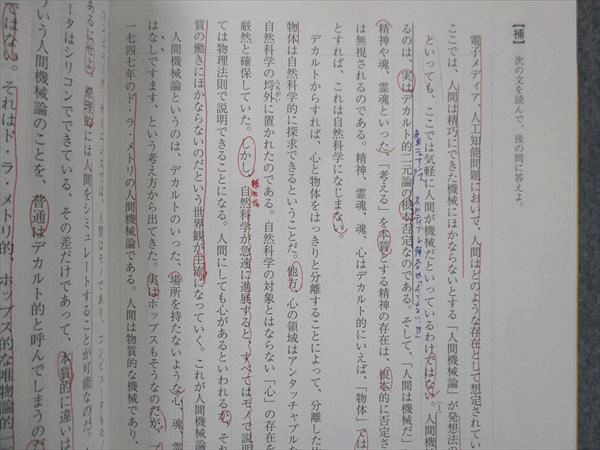 【補】 次の文を読んで、後の問に答えよ。
電子メディア、人工知能問題において、人間はどのような存在として想定されてい
ここでは、人間は精巧にできた機械にほかならないとする「人間機械論」が発想法の
といっても、ここでは気軽に人間が機械だといっているわけではない。人間機械
るのは、実はデカルト的二元論の根本否定なのである。そして、「人間は機械だ」
精神や魂、霊魂といった「考える」を本質とする精神の存在は、根本的に否定さ
は無視されるのである。精神、霊魂、魂、心はデカルト的にいえば、「物体」では
とすれば、これは自然科学になじまない。
デカルトからすれば、心と物体をはっきりと分離することによって、分離した
物体は自然科学的に探求できるということだ。他方、心の領域はアンタッチャブルな
自然科学の埒外に置かれたのである。自然科学の対象とはならない「心」の存在を
厳然と確保していた。しかし、自然科学が急速に進展すると、すべてはモノで説明
ては物理法則で説明できることになる。人間にしても心があるといわれるが、それ
質の働きにほかならないのだという世界観が主流になっていく。これが人間機械論
人間機械論というのは、デカルトのいった、場所を持たないような心、魂、霊
はなしですます、という考え方から出てきた。実はホッブスもそうなのだが、
一七四七年のド・ラ・メトリの人間機械論である。人間は物質的な機械であり、
あるにせよ、原理的には人間をシミュレートすることが可能なのだ。
ータはシリコンでできている、その差だけであって、本質的に違いは
ういう人間機械論のことを、普通はデカルト的と呼んでしまうのだ
ではない。それはド・ラ・メトリ的、ホッブス的な唯物論的